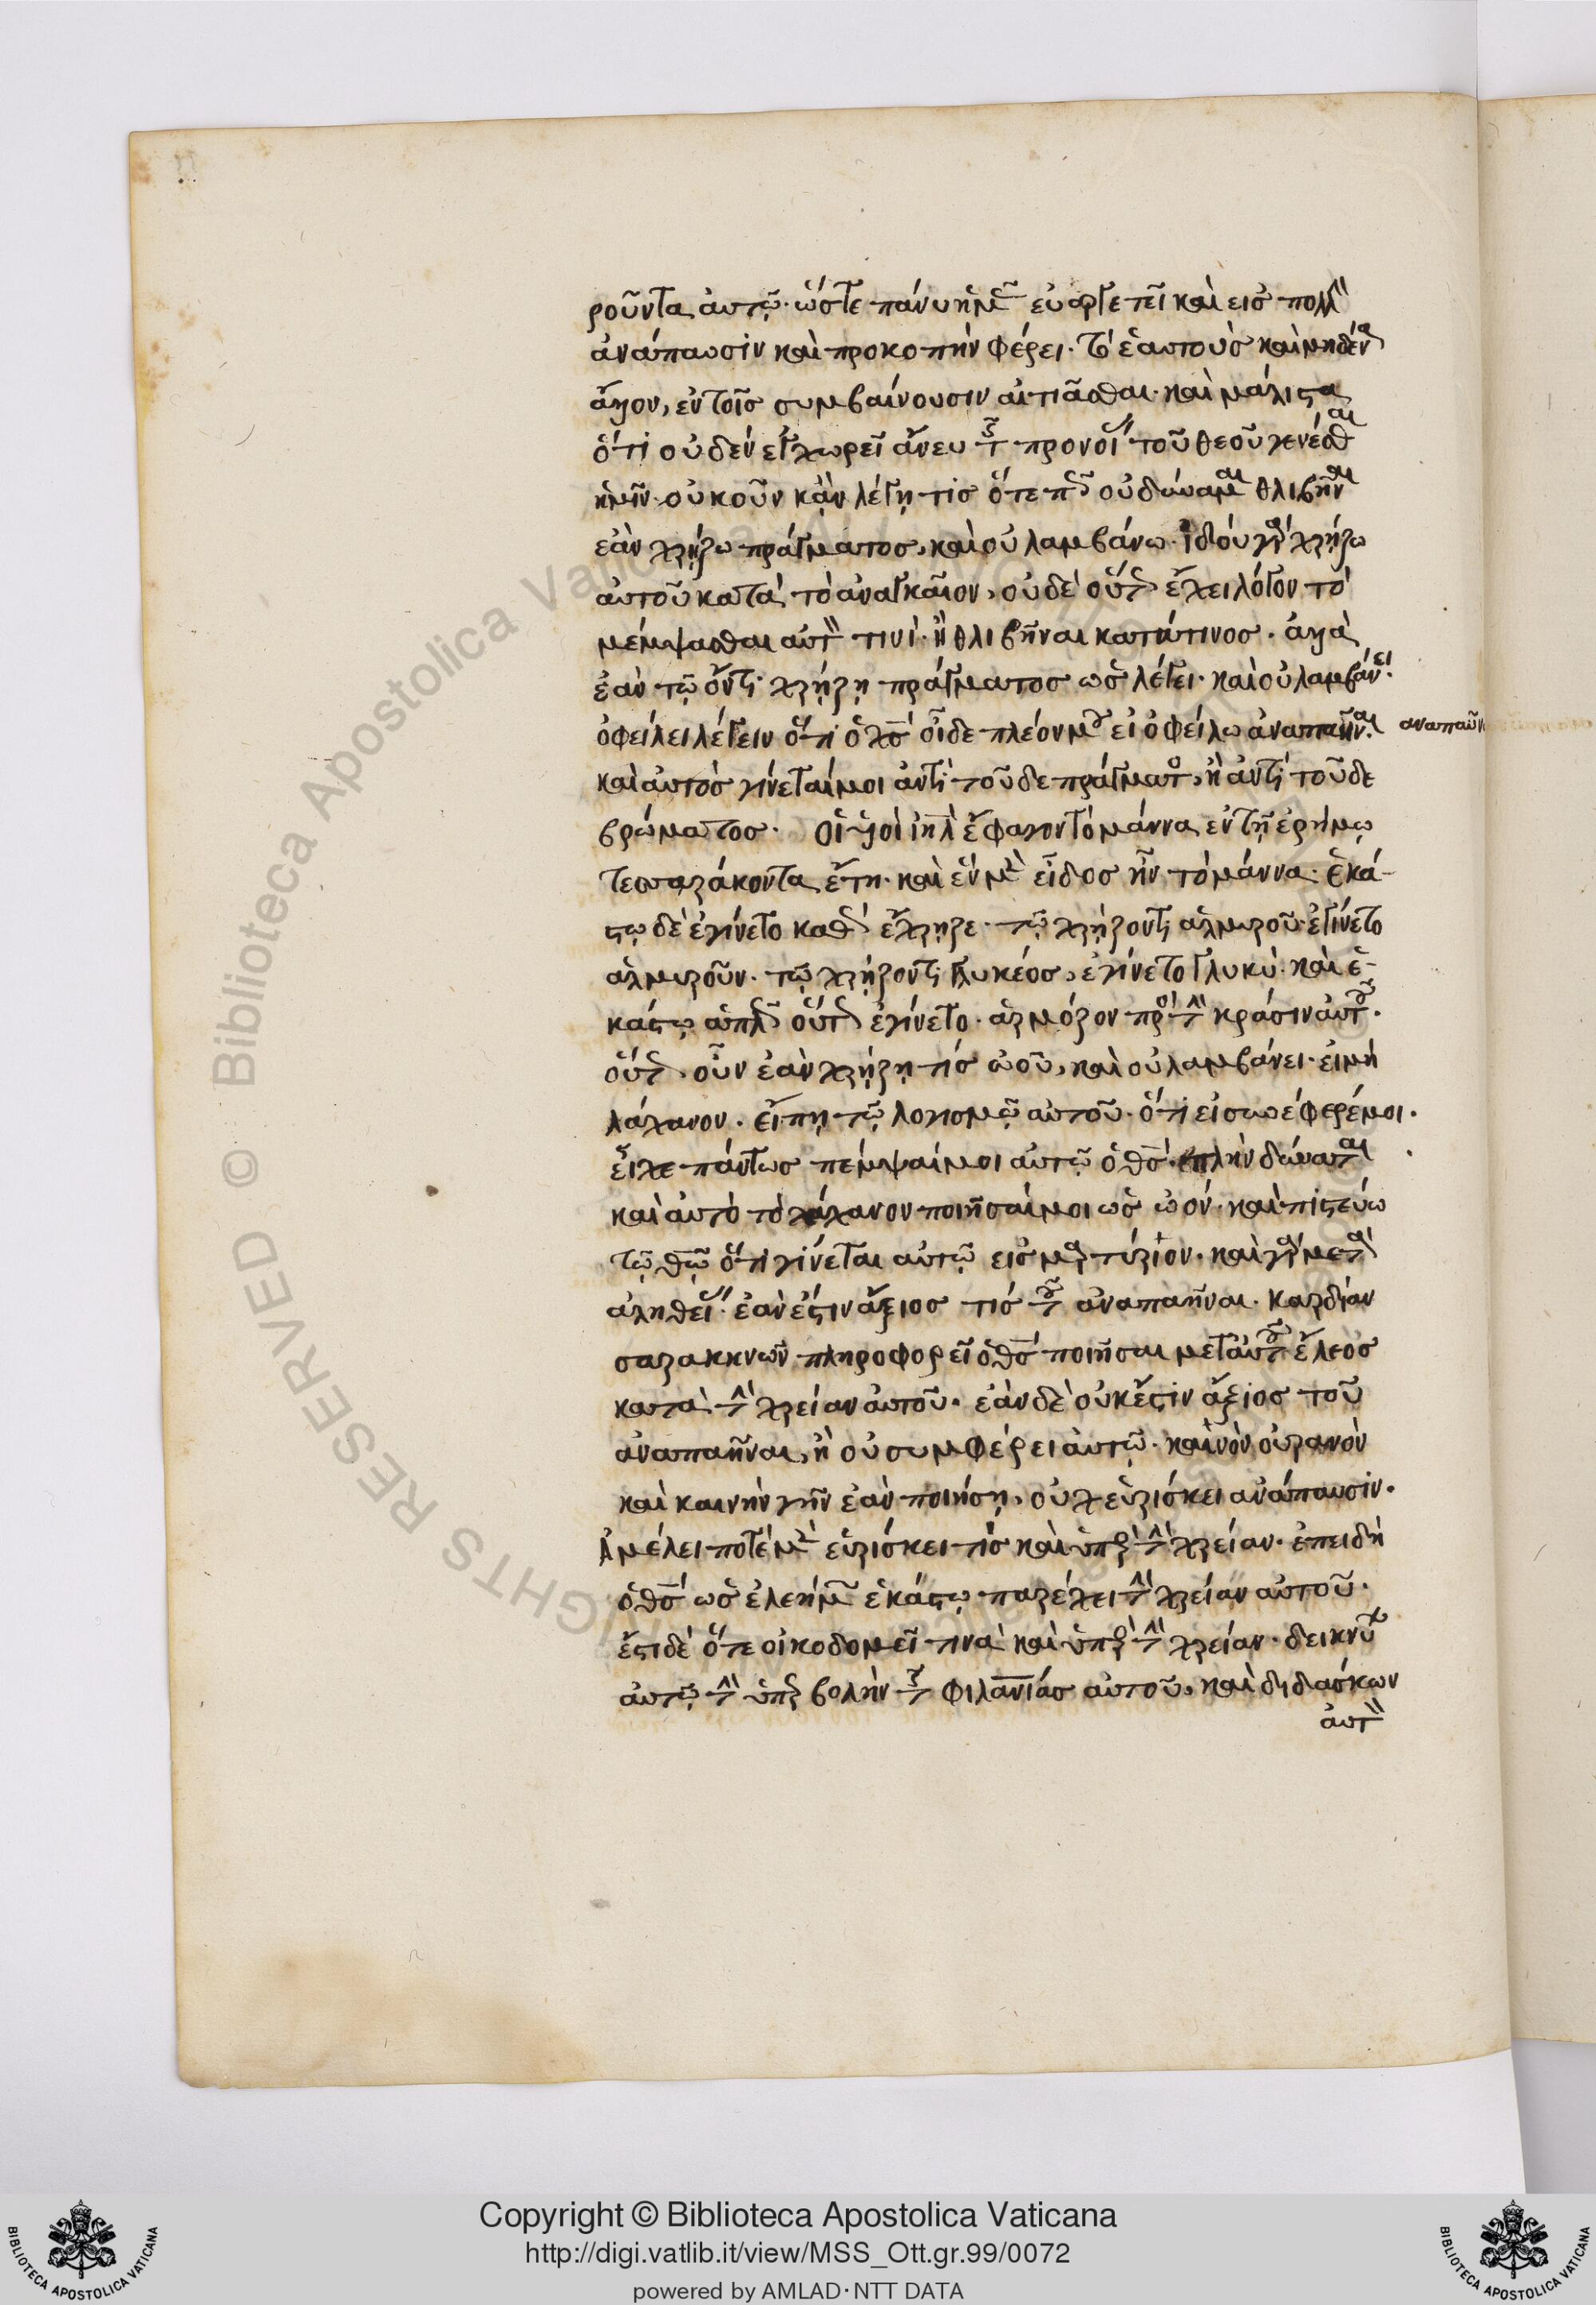 ροῦντα αὐτῷ· ὥστε πάνυ ἡμᾶς εὐεργετεῖ καὶ εἰς πολλὴν
ἀνάπαυσιν καὶ προκοπὴν φέρει· τὸ ἑαυτοὺς καὶ μηδένα
ἄλλον, ἐν τοῖς συμβαίνουσιν αἰτιᾶσθαι· καὶ μάλιστα
ὅτι οὐδὲν ἐγχωρεῖ ἄνευ τῆς προνοίας τοῦ θεοῦ γενέσθαι
ἡμῖν· οὐκοῦν κἂν λέγῃ τις ὅτε πῶς οὐ δύναμαι θλιβῆναι
ἐὰν χρῄζω πράγματος, καὶ οὐ λαμβάνω· ἰδοὺ γὰρ χρῄζω
αὐτοῦ κατὰ τὸ ἀναγκαῖον, οὐδὲ οὕτως ἔχει λόγον τὸ
μέμψασθαι αὐτὸν τινί· ἢ θλιβῆναι κατά τινος· ἀλλὰ
ἐὰν τῷ ὄντι χρῄζῃ πράγματος ὡς λέγει· καὶ οὐ λαμβάνει·
ὀφείλει λέγειν ὅτι ὁ χς οἶδε πλέον μου εἰ ὀφείλω ἀναπαῆναι· αναπαῦν
καὶ αὐτὸς γίνεταί μοι ἀντὶ τοῦδε πράγματος, ἢ ἀντὶ τοῦδε
βρώματος· οἱ υἱοὶ ιηλ ἔφαγον τὸ μάννα ἐν τῇ ἐρήμῳ
τεσσαράκοντα ἔτη· καὶ ἓν μὲν εἶδος ἦν τὸ μάννα· ἑκά-
στῳ δὲ ἐγίνετο καθὼς ἔχρῃζε· τῷ χρῄζοντι ἁλμυροῦ· ἐγίνετο
ἁλμυροῦν· τῷ χρῄζοντι γλυκέος, ἐγίνετο γλυκύ· καὶ ἑ-
κάστῳ ἁπλῶς οὕτως ἐγίνετο· ἁρμόζον πρὸς τὴν κρᾶσιν αὐτοῦ·
οὕτως οὖν ἐὰν χρῄζῃ τίς ὠοῦ, καὶ οὐ λαμβάνει· εἰ μὴ
λάχανον· εἴπῃ τῷ λογισμῷ αὐτοῦ· ὅτι εἰ συνέφερέ μοι·
εἶχε πάντως πέμψαι μοι αὐτῷ ὁ θς· πλὴν δύναται
καὶ αὐτὸ τὸ λάχανον ποιῆσαί μοι ὡς ὠόν· καὶ πιστεύω
τῷ θῷ ὅτι γίνεται αὐτῷ εἰς μαρτύριον· καὶ γὰρ μετὰ
ἀληθείας· ἐὰν ἔστιν ἄξιος τὶς τοῦ ἀναπαῆναι· καρδίαν
σαρακηνῶν πληροφορεῖ ὁ θς ποιῆσαι μετ' αὐτοῦ ἔλεος
κατὰ τὴν χρείαν αὐτοῦ· ἐὰν δὲ οὐκ ἔστιν ἄξιος τοῦ
ἀναπαῆναι, ἢ οὐ συμφέρει αὐτῷ· καινὸν οὐρανὸν
καὶ καινὴν γῆν ἐὰν ποιήσῃ, οὐχ εὑρίσκει ἀνάπαυσιν·
Ἀμέλει ποτὲ μὲν εὑρίσκει τίς καὶ ὑπὲρ τὴν χρείαν· ἐπειδὴ
ὁ θς ὡς ἐλεήμων ἑκάστῳ παρέχει τὴν χρείαν αὐτοῦ·
ἔστι δὲ ὅτε οἰκοδομεῖ τινὰ καὶ ὑπὲρ τὴν χρείαν· δεικνύων
αὐτῷ τὴν ὑπερβολὴν τῆς φιλανίας αὐτοῦ, καὶ διδάσκων
αὐτὸν